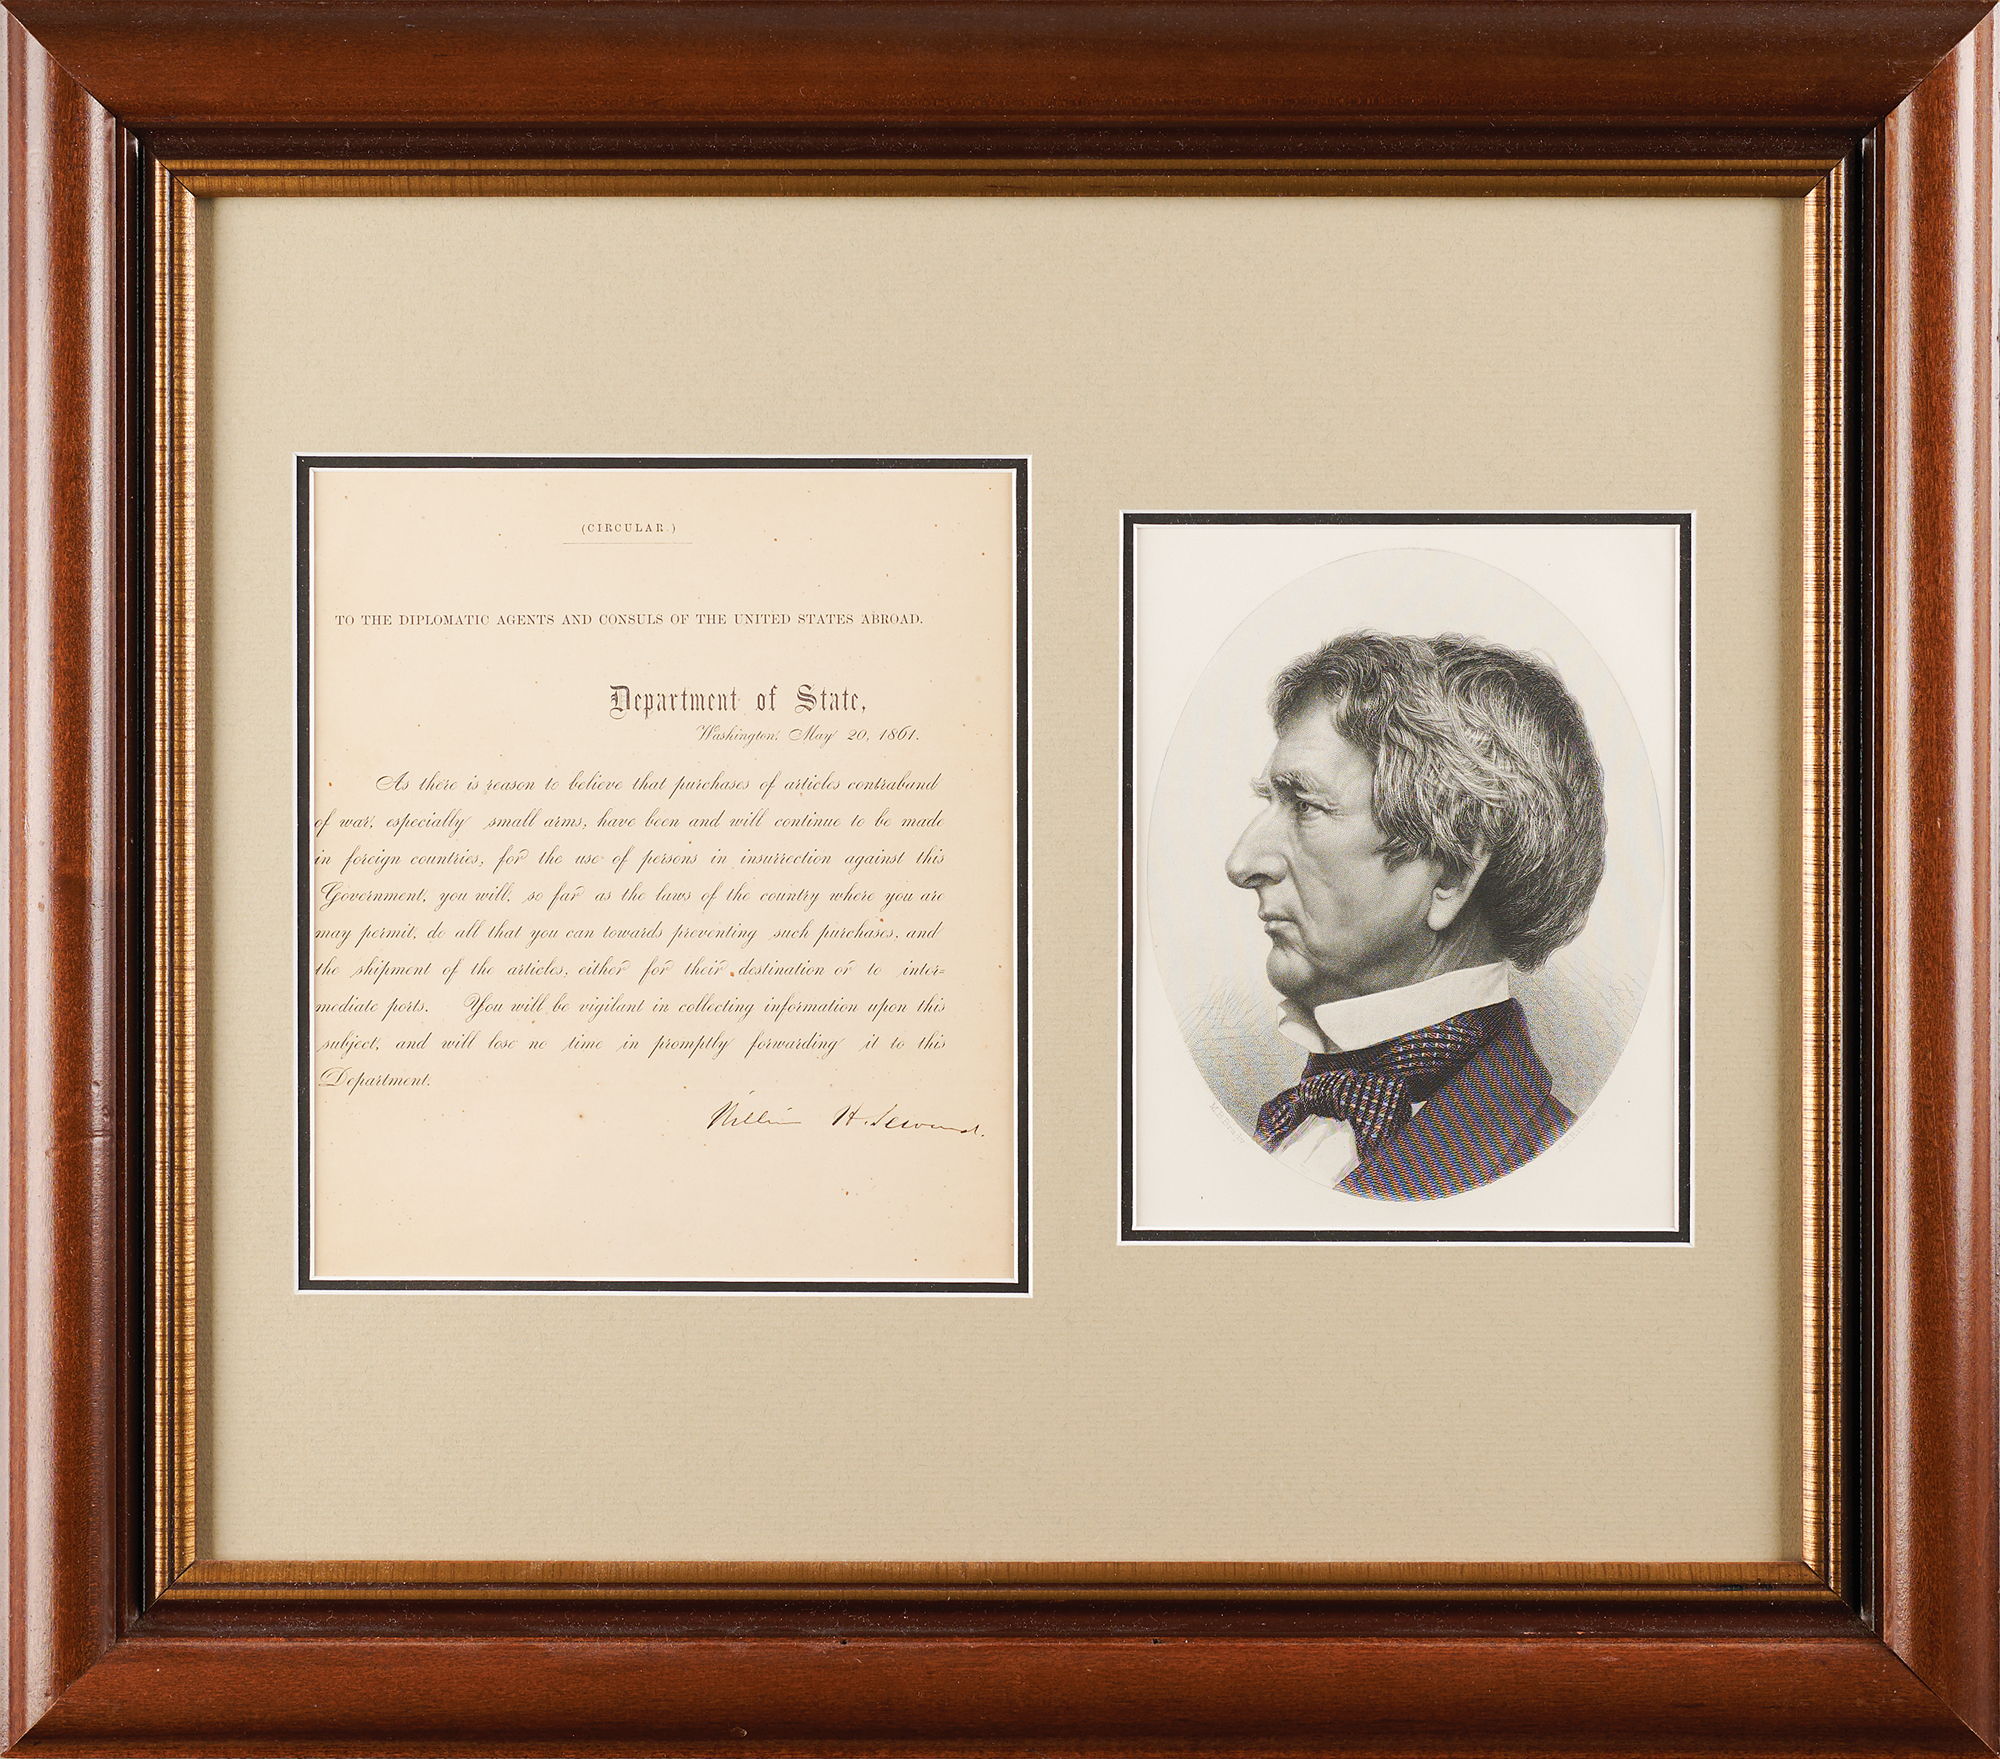 (CIRCULAR.)
TO THE DIPLOMATIC AGENTS AND CONSULS OF THE UNITED STATES ABROAD.
Department of State,
Washington, May 20, 1861.
As there is reason to believe that purchases of articles contraband
of war, especially small arms, have been and will continue to be made
in foreign countries, for the use of persons in insurrection against this
Government, you will, so far as the laws of the country where you are
may permit, do all that you can towards preventing such purchases, and
the shipment of the articles, either for their destination or to inter=
mediate ports. You will be vigilant in collecting information upon this
subject, and will lose no time in promptly forwarding it to this
Department.
William H. Seward.